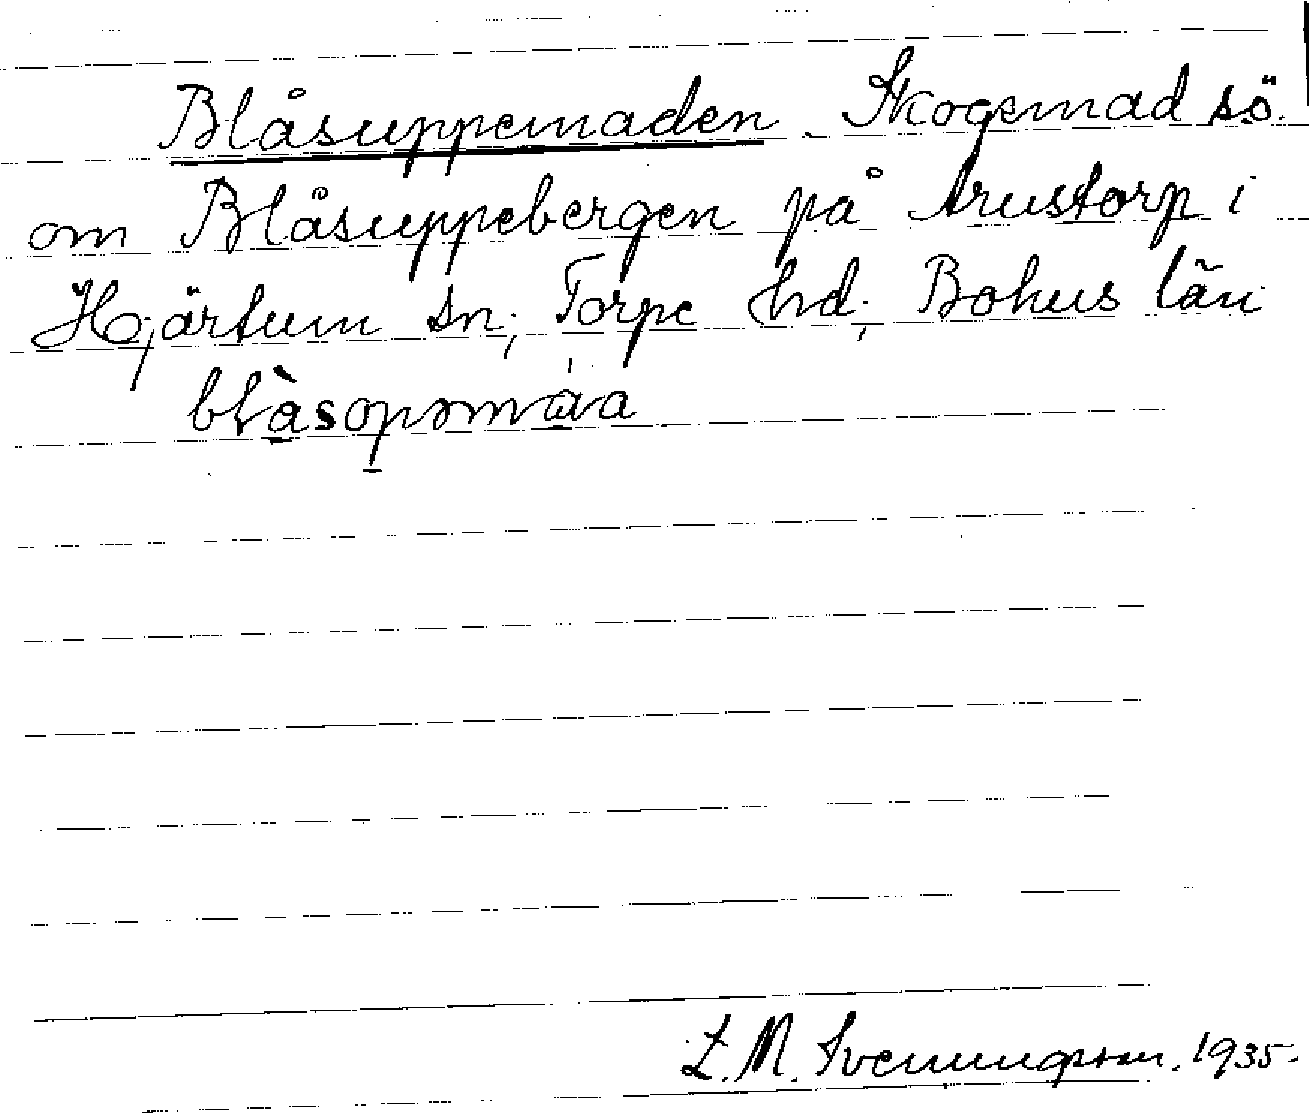 Blåsuppemaden. Skogsmad sö.
om Blåsuppebergen på Arustorp i
Hjärtum sn, Torpe hd, Bohus län
blåsopəmáa
L. M. Svenungsson. 1935.